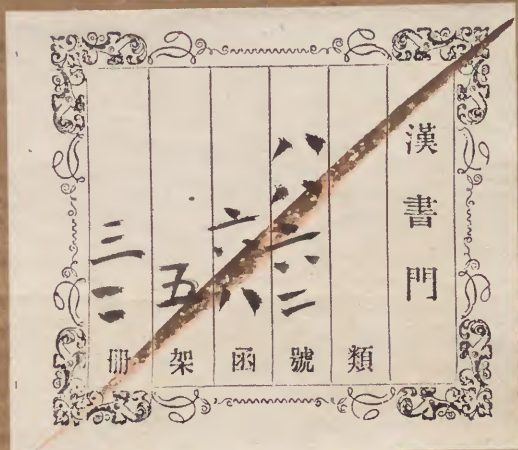 漢書門
類
八八六二號
六八函
五架
三二冊